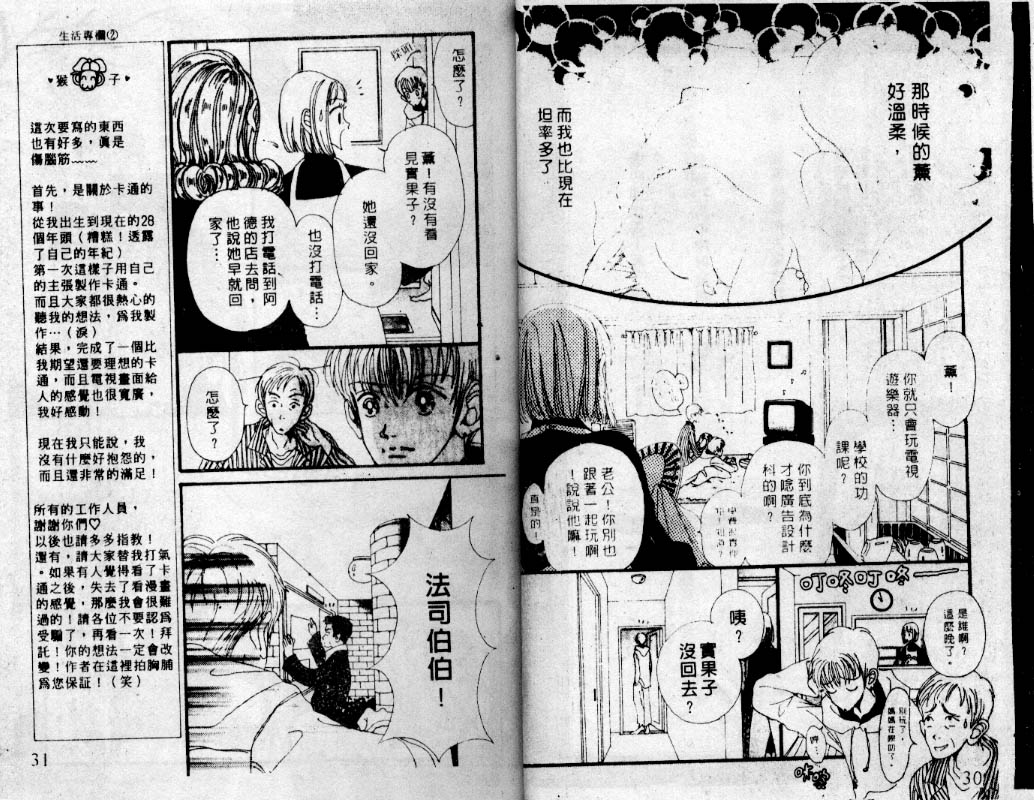 那時候的薰
好溫柔，
而我也比現在
坦率多了
薰！
你就只會玩電視
遊樂器…
學校的功
課呢？
你到底為什麼
才唸廣告設計
科的啊？
老公！你別也
跟著一起玩啊
！說說他嘛！
真是的！
叮咚叮咚——
是誰啊？
這麼晚了。
別玩了，
媽媽在喚叻了。
咔咚
咦？
實果子
沒回去？
30
怎麼了？
探頭
薰！有沒有看
見實果子？
她還沒回家。
也沒打電話…
我打電話到阿
德的店去問，
他說她早就回
家了…
怎麼了？
法司伯伯！
生活專欄②
♥猴子♥
這次要寫的東西
也有好多，真是
傷腦筋~~~
首先，是關於卡通的
事！
從我出生到現在的28
個年頭（糟糕！透露
了自己的年紀）
第一次這樣子用自己
的主張製作卡通。
而且大家都很熱心的
聽我的想法，為我製
作…（淚）
結果，完成了一個比
我期望還要理想的卡
通，而且電視畫面給
人的感覺也很寬廣，
我好感動！
現在我只能說，我
沒有什麼好抱怨的，
而且還非常的滿足！
所有的工作人員，
謝謝你們♡
以後也請多多指教！
還有，請大家替我打氣
。如果有人覺得看了卡
通之後，失去了看漫畫
的感覺，那麼我會很難
過的！請各位不要認為
受騙了，再看一次！拜
託！你的想法一定會改
變！作者在這裡拍胸脯
為您保証！（笑）
31